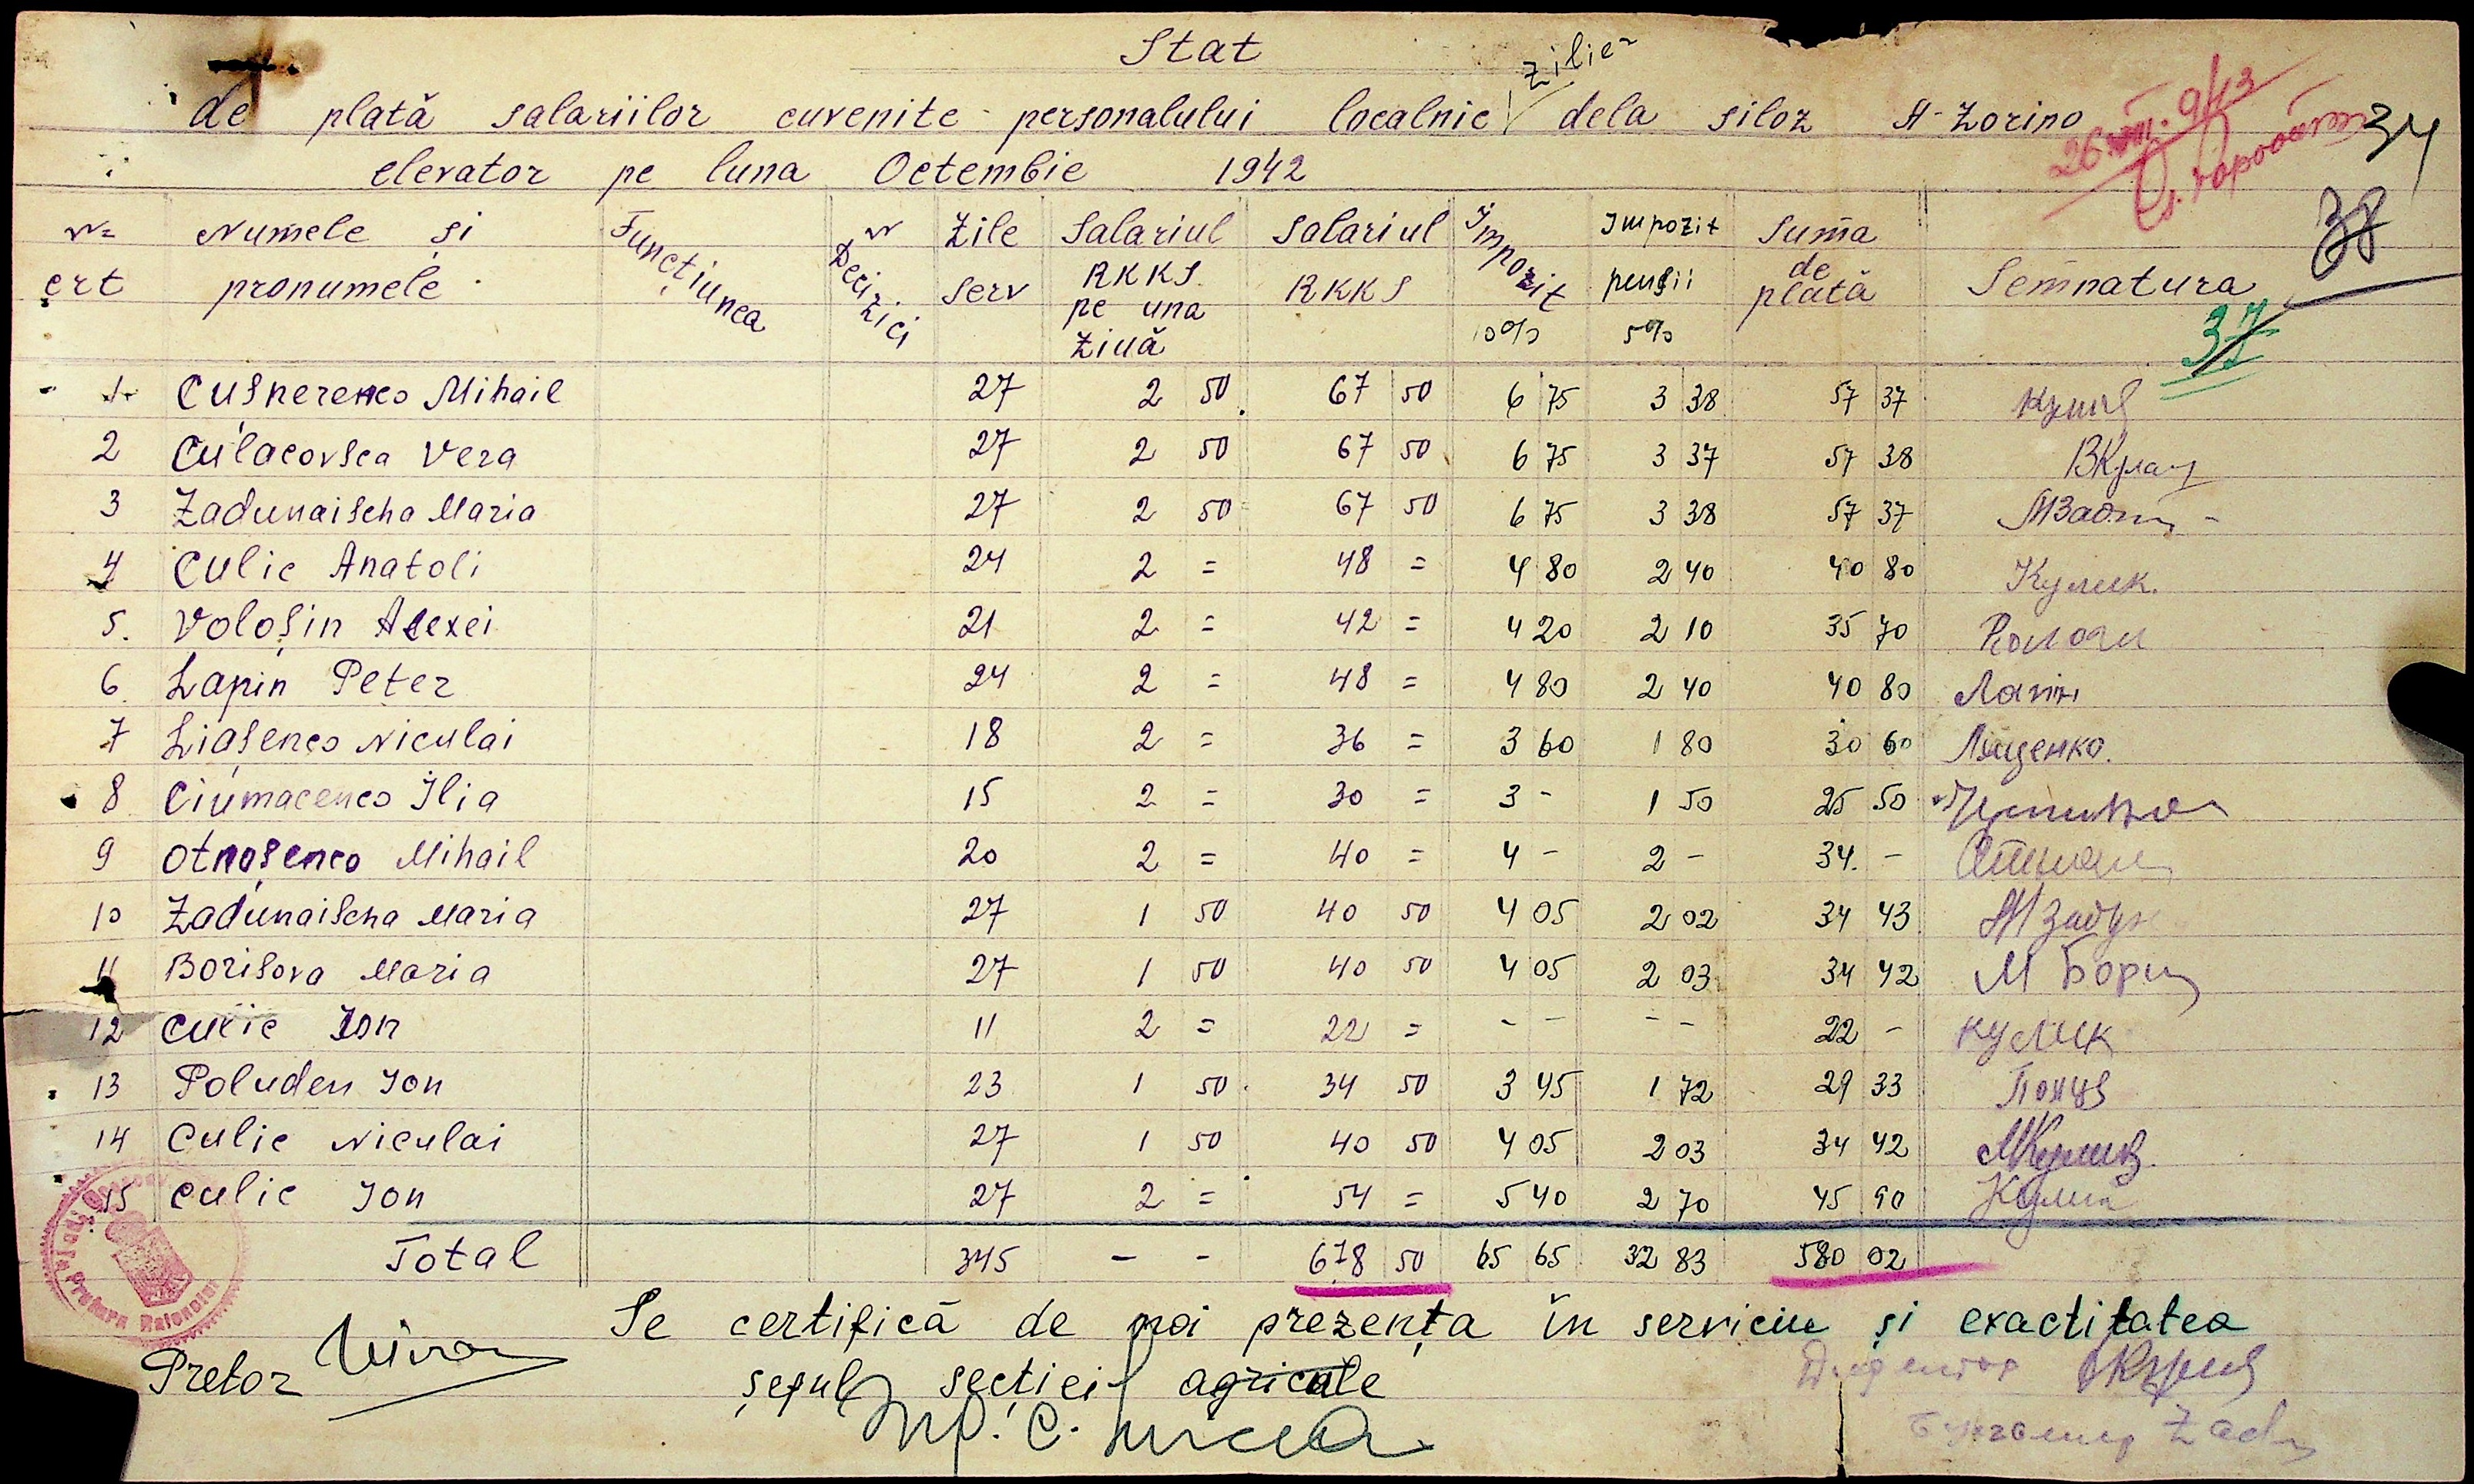 Stat
zilier
de plată salariilor cuvenite personalului localnic dela siloz A-Zorino
elevator pe luna Octembie 1942
34
38
37
Nr crt Numele și pronumele Funcțiunea Nr Decizici Zile serv Salariul RKKS pe una ziuă Salariul RKKS Impozit 10% Impozit pensii 5% Suma de plată Semnatura
1 Cușnerenco Mihail 27 2 50 67 50 6 75 3 38 57 37
2 Culacovsca Vera 27 2 50 67 50 6 75 3 37 57 38
3 Zadunaischa Maria 27 2 50 67 50 6 75 3 38 57 37
4 Culic Anatoli 24 2 = 48 = 4 80 2 40 40 80 Кулик.
5. Voloșin Alexei 21 2 = 42 = 4 20 2 10 35 70
6 Lapin Peter 24 2 = 48 = 4 80 2 40 40 80 Лапін
7 Liașenco Niculai 18 2 = 36 = 3 60 1 80 30 60 Лященко.
8 Ciumacenco Ilia 15 2 = 30 = 3 - 1 50 25 50
9 Otnoșenco Mihail 20 2 = 40 = 4 - 2 - 34. -
10 Zadunaischa Maria 27 1 50 40 50 4 05 2 02 34 43 М Задун
11 Borisova Maria 27 1 50 40 50 4 05 2 03 34 42 М Бори
12 Culic Ion 11 2 = 22 = - - - - 22 - кулик
13 Poluden Ion 23 1 50 34 50 3 45 1 72 29 33
14 Culic Niculai 27 1 50 40 50 4 05 2 03 34 42
15 Culic Ion 27 2 = 54 = 5 40 2 70 45 90
Total 345 - - 678 50 65 65 32 83 580 02
Se certifică de noi prezența în serviciu și exactitatea
Pretor
șeful secției agricole
Директор